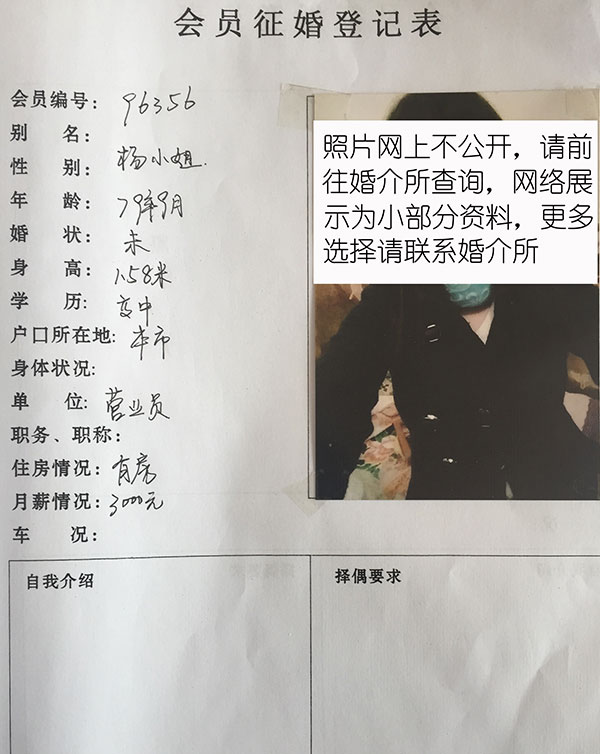 会员征婚登记表
会员编号： 96356
别 名：
性 别： 杨小姐.
年 龄： 79年9月
婚 状： 未
身 高： 1.58米
学 历： 高中
户口所在地: 本市
身体状况:
单 位: 营业员
职务、职称：
住房情况: 有房
月薪情况: 3000元
车 况:
照片网上不公开，请前
往婚介所查询，网络展
示为小部分资料，更多
选择请联系婚介所
自我介绍
择偶要求